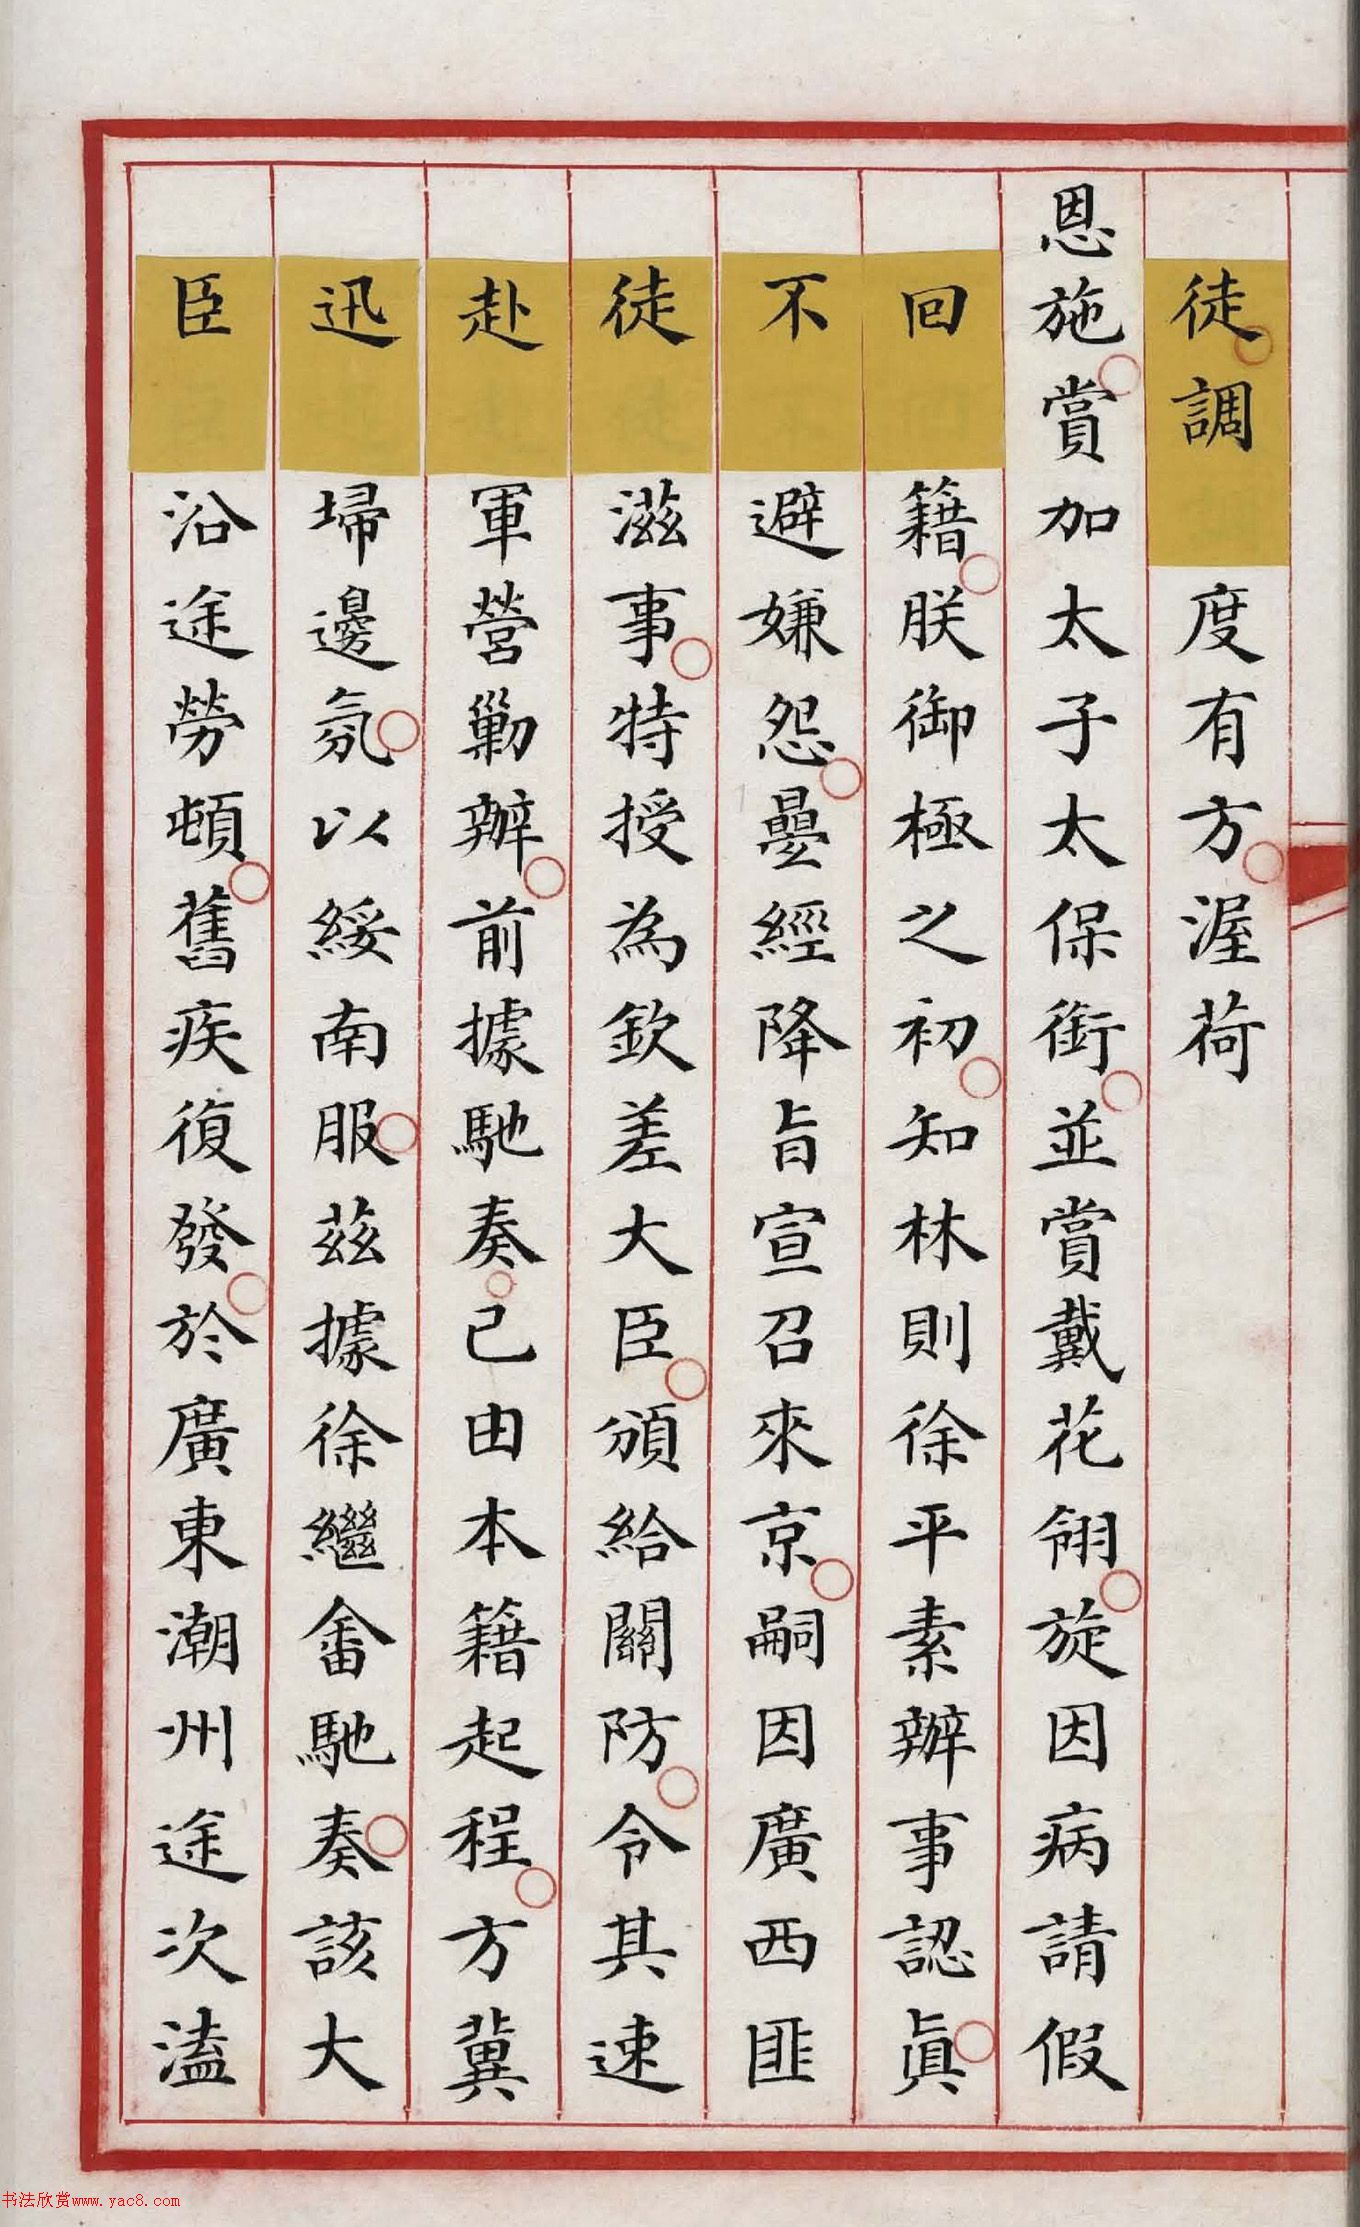 徒調度有方渥荷
恩施賞加太子太保銜並賞戴花翎旋因病請假
回籍朕御極之初知林則徐平素辦事認眞
不避嫌怨曡經降旨宣召來京嗣因廣西匪
徒滋事特授為欽差大臣頒給關防令其速
赴軍營勦辦前據馳奏已由本籍起程方冀
迅埽邊氛以綏南服茲據徐繼畬馳奏該大
臣沿途勞頓舊疾復發於廣東潮州途次溘
书法欣赏www.yac8.com